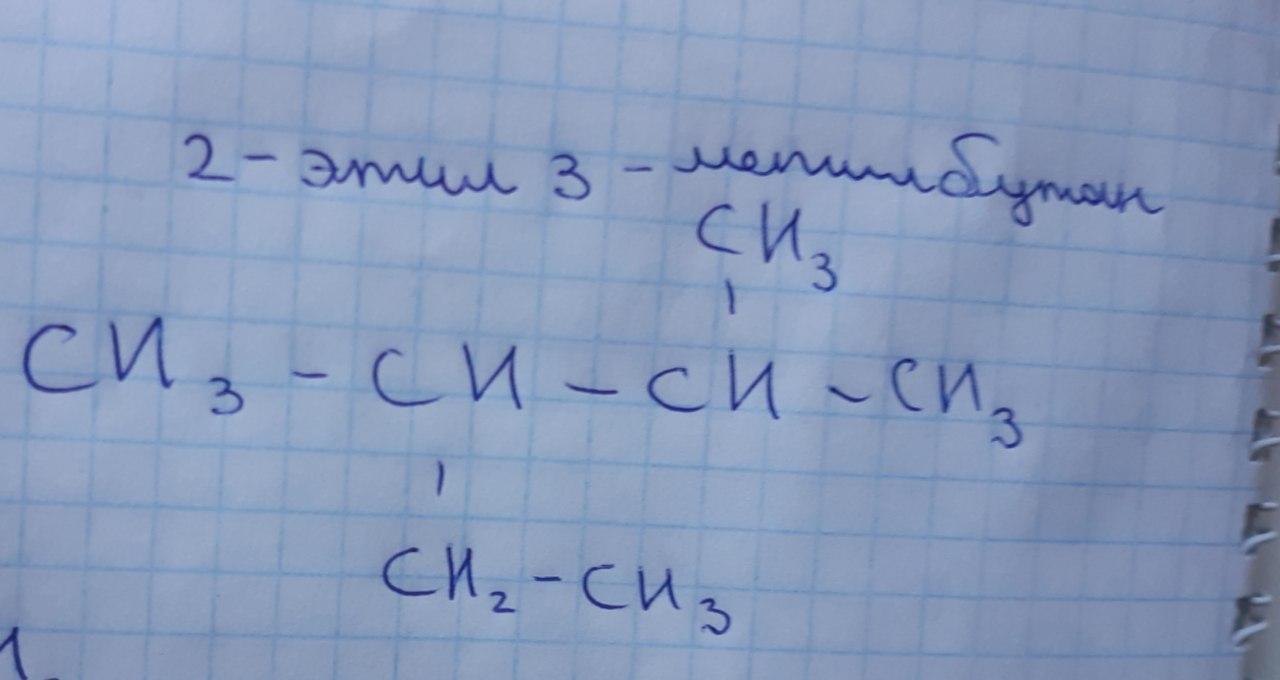 2 - этил 3 - метилбутан
CH3
CH3 - CH - CH - CH3
CH2 - CH3